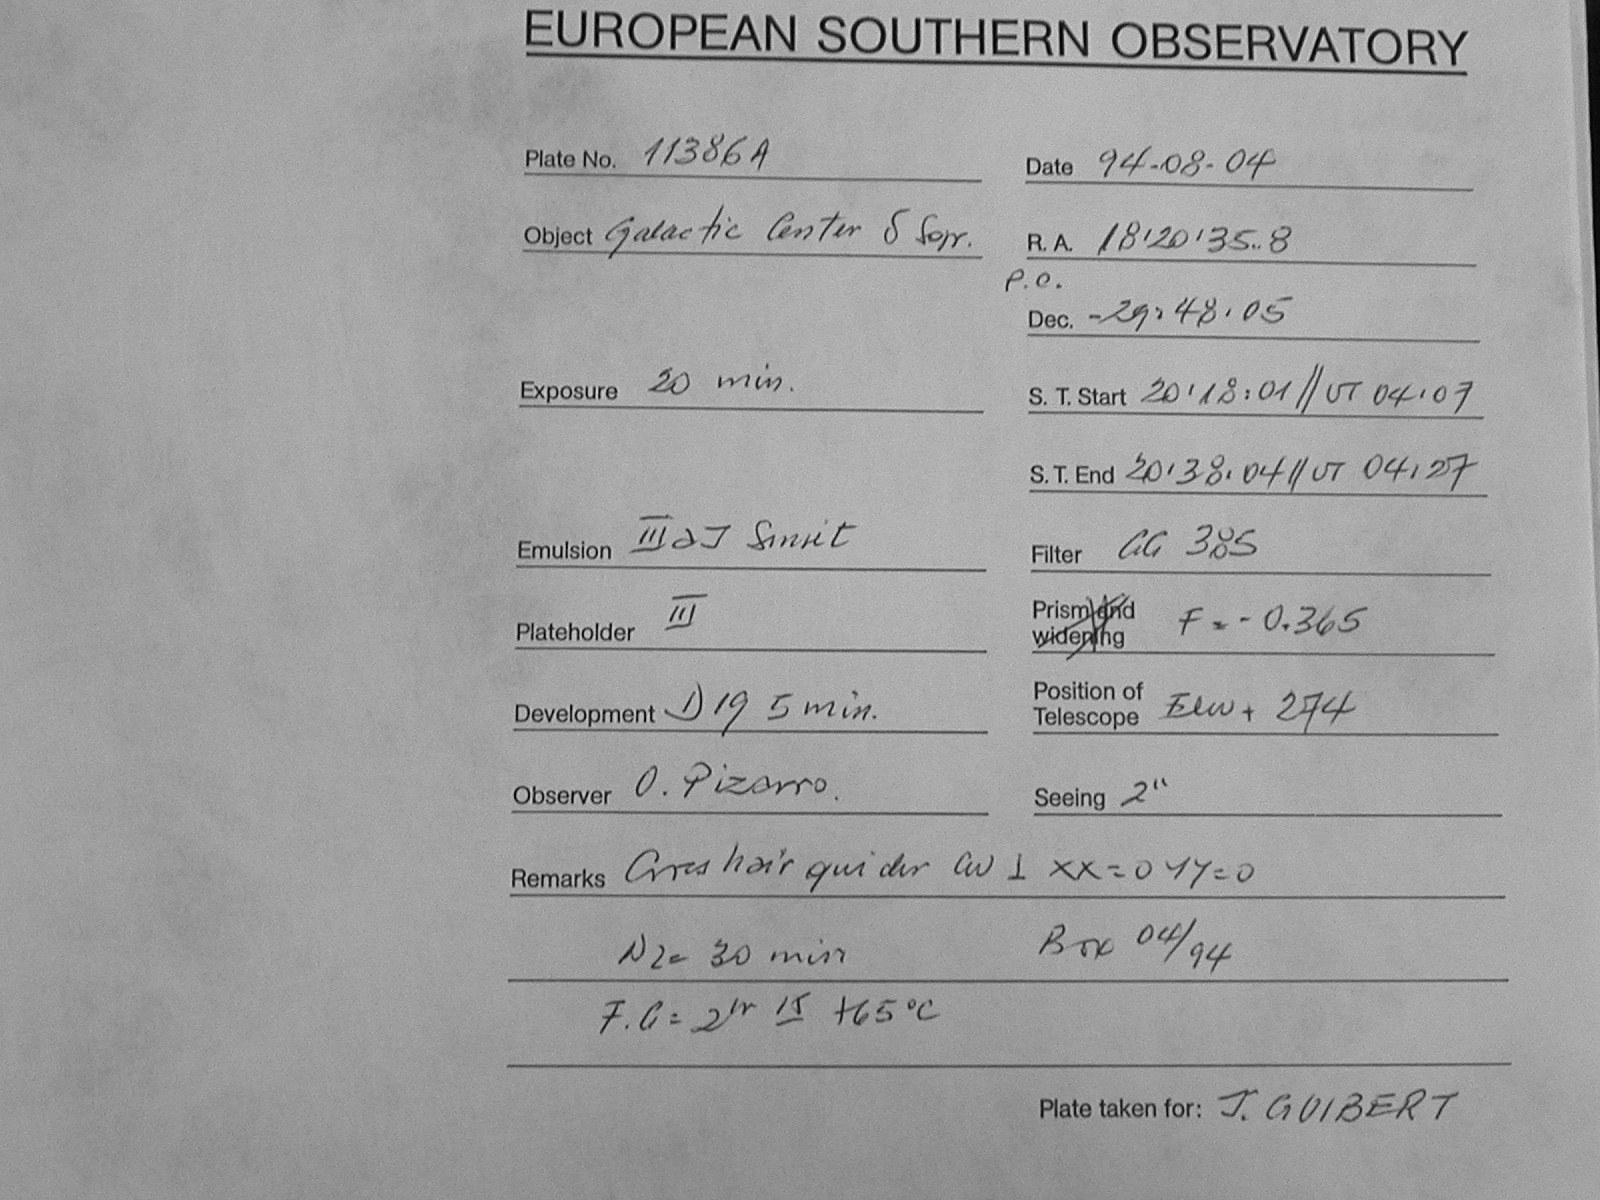 EUROPEAN SOUTHERN OBSERVATORY
Plate No. 11386A
Date 94-08-04
Object Galactic Center δ
R. A. 18'20'35..8
P.O.
Dec. -29. 48. 05
Exposure 20 min.
S. T. Start 20'18:01 // UT 04:07
S. T. End 20'38. 04 // UT 04:27
Emulsion III aJ
Filter GG 385
Plateholder III
Prism and widening F = - 0.365
Development D19 5 min.
Position of Telescope + 274
Observer O. Pizarro.
Seeing 2"
Remarks Cross hair guider CW ⊥ XX=0 YY=0
N2= 30 min
Box 04/94
F.G = 2hr 15 +65°C
Plate taken for: J. GUIBERT